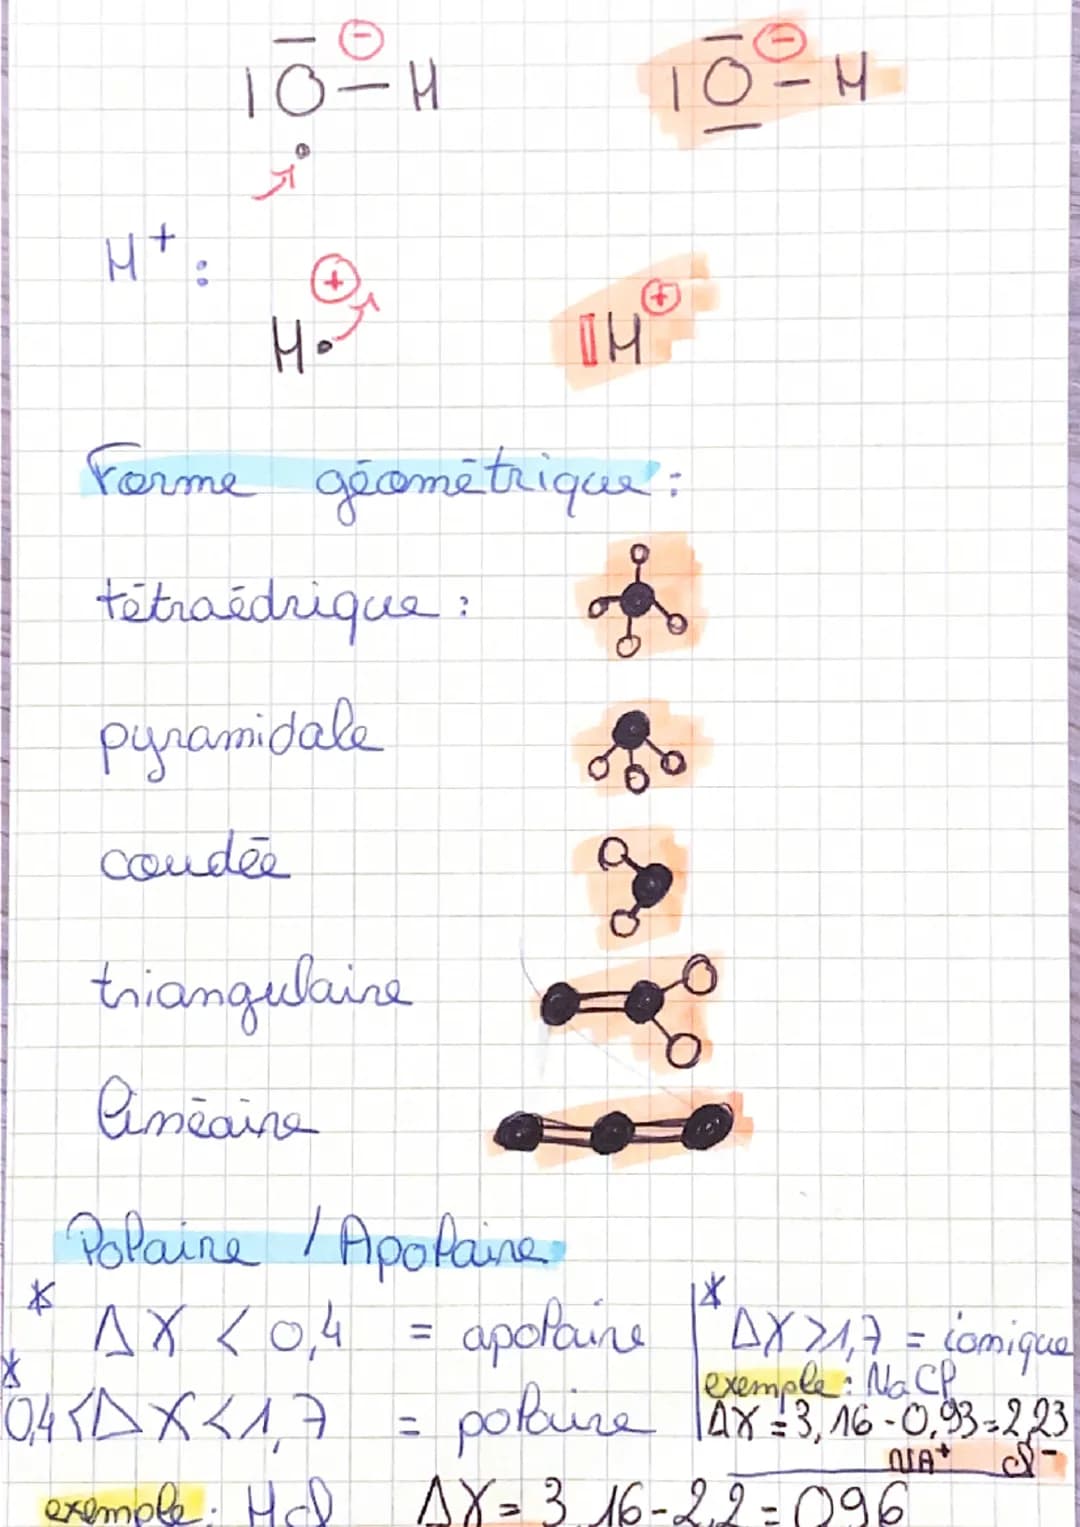 |O⊖-H |O⊖-H
H⁺:
H• ⊕ H⊕
Forme géométrique :
tétraédrique :
pyramidale
coudée
triangulaire
linéaire
Polaire / Apolaire
* ΔX < 0,4 = apolaire
* 0,4 < ΔX < 1,7 = polaire
exemple : HCl ΔX = 3,16-2,2 = 0,96
* ΔX > 1,7 = ionique
exemple : NaCl
ΔX = 3,16 - 0,93 = 2,23
NA⁺ Cl⁻